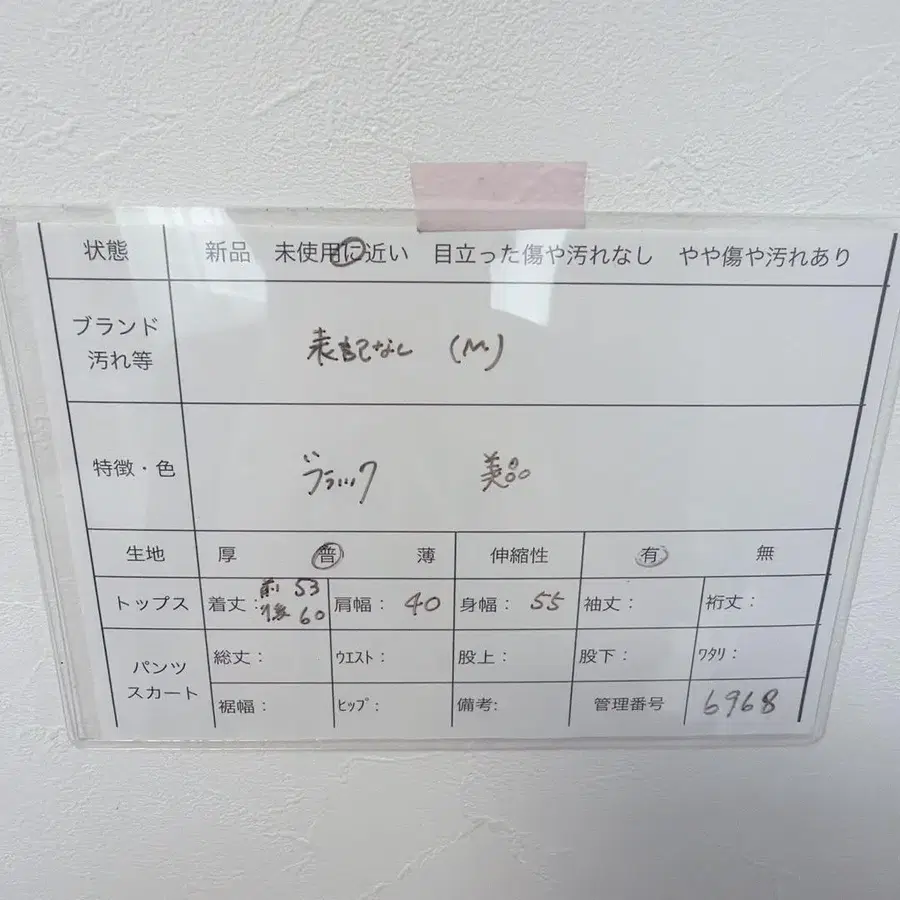 状態 新品 未使用に近い 目立った傷や汚れなし やや傷や汚れあり
ブランド
汚れ等
表記なし (M)
特徴・色 ブラック 美品
生地 厚 普 薄 伸縮性 有 無
トップス 着丈: 前 53
後 60
肩幅: 40 身幅: 55 袖丈: 裄丈:
パンツ
スカート
総丈: ウエスト: 股上: 股下: ワタリ:
裾幅: ヒップ: 備考: 管理番号 6968